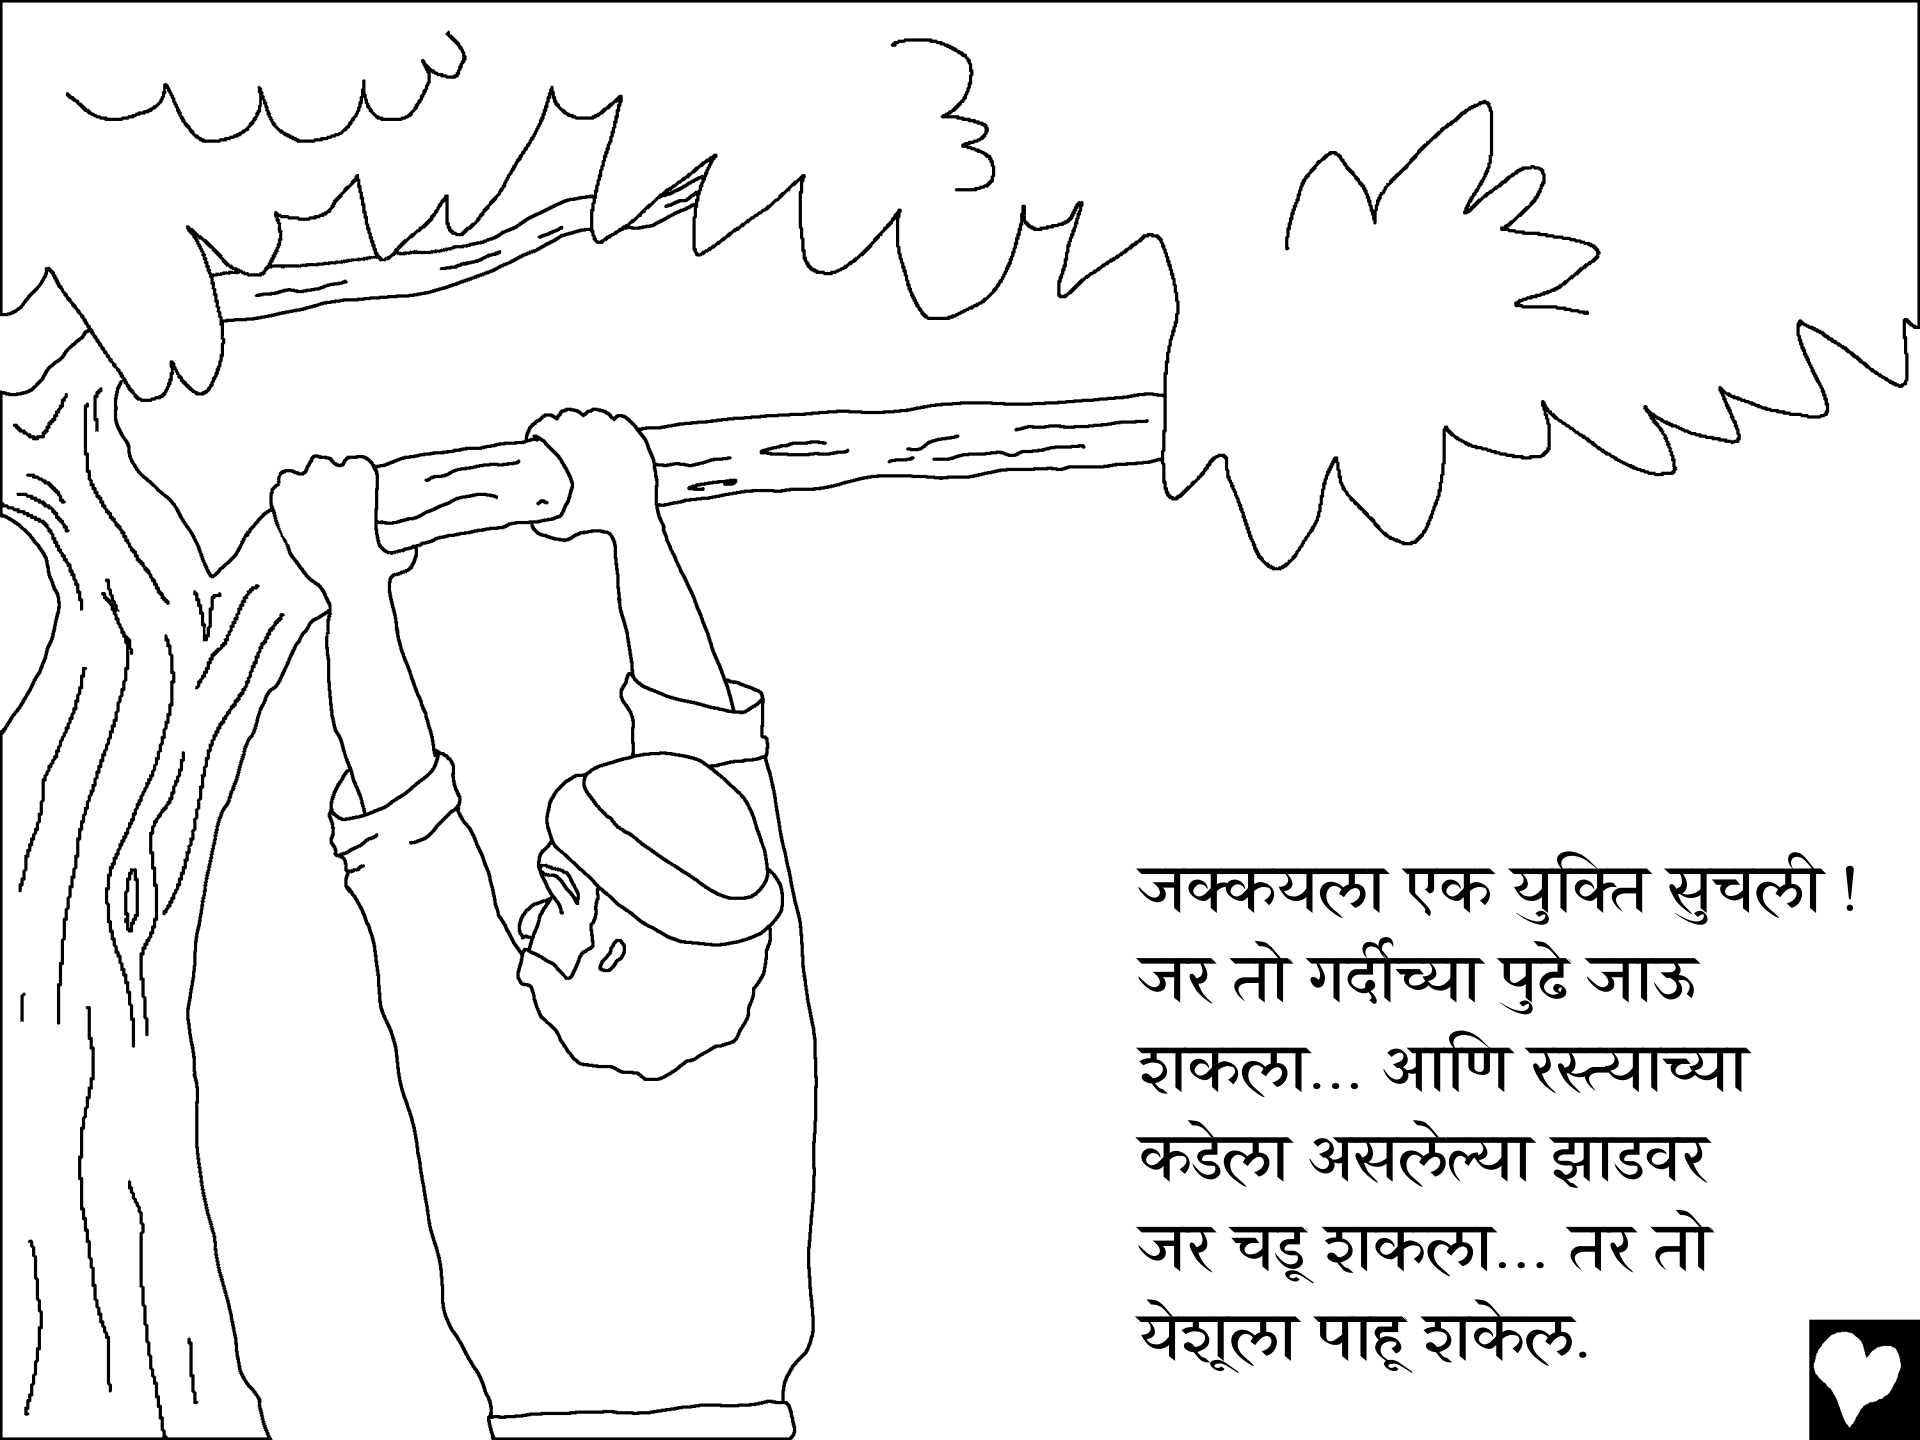 जक्कयला एक युक्ति सुचली !
जर तो गर्दीच्या पुढे जाऊ
शकला... आणि रस्त्याच्या
कडेला असलेल्या झाडवर
जर चडू शकला... तर तो
येशूला पाहू शकेल.